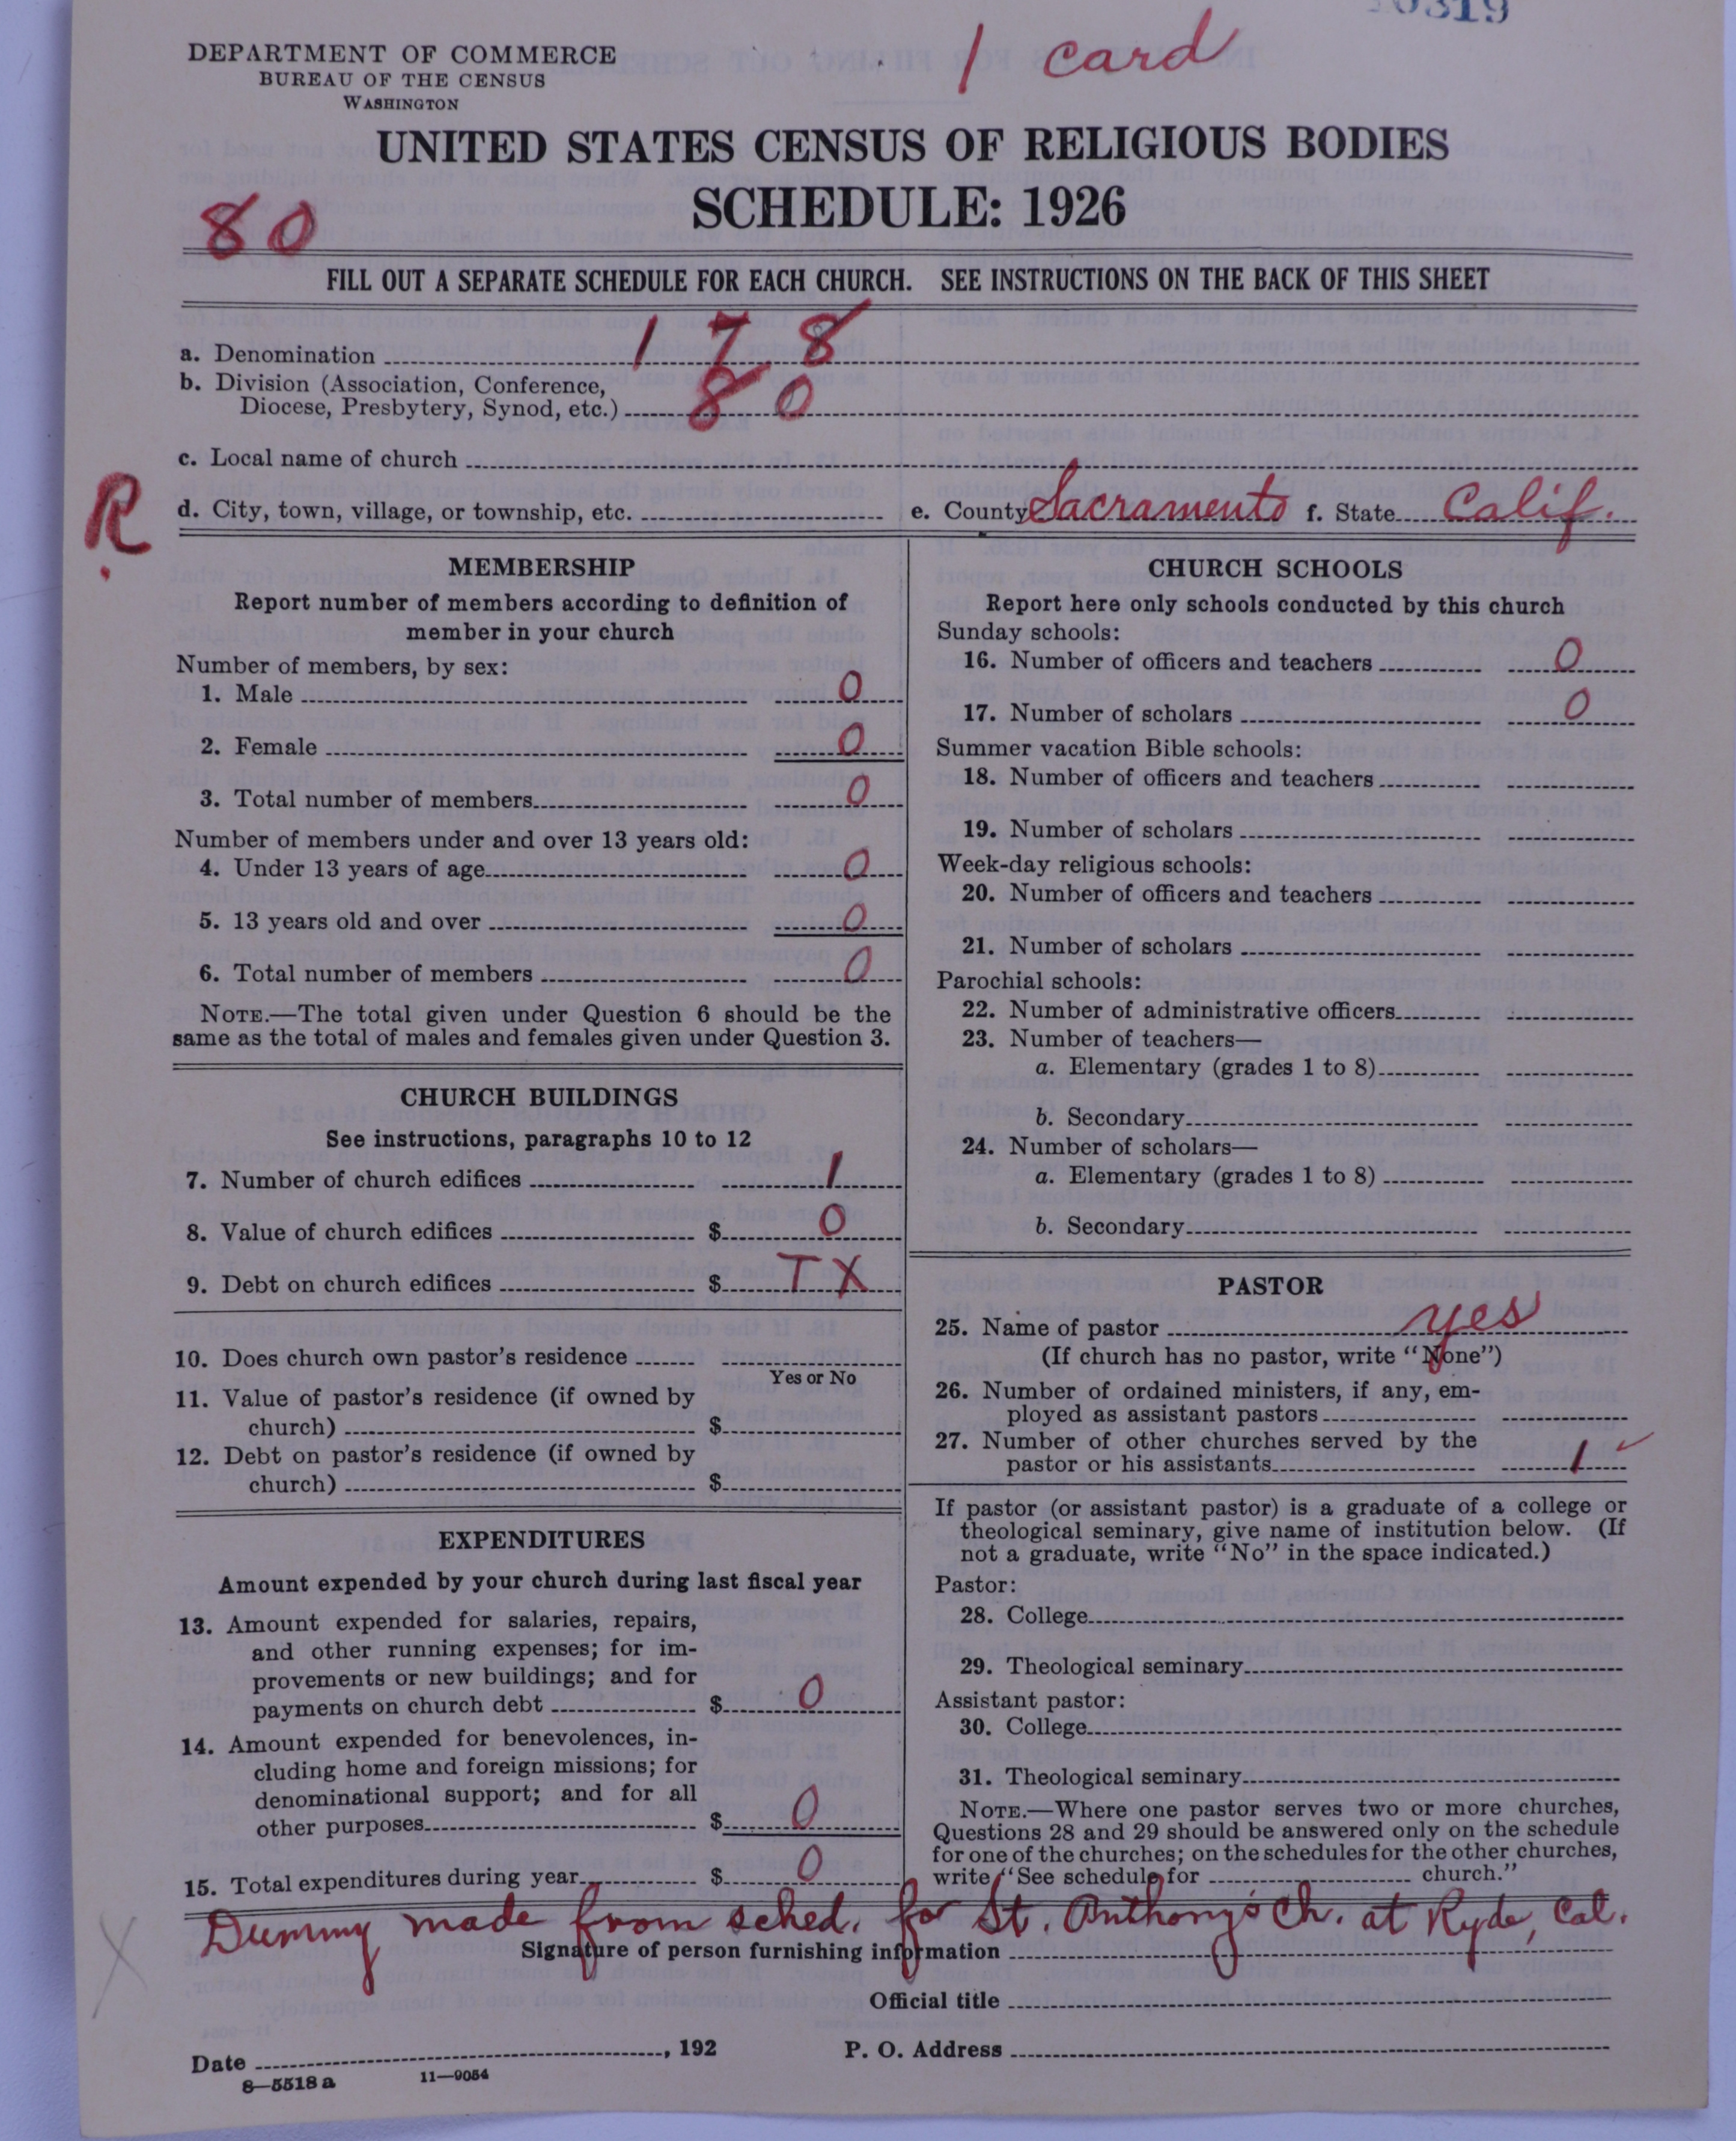 0319
1 card
DEPARTMENT OF COMMERCE
BUREAU OF THE CENSUS
WASHINGTON
UNITED STATES CENSUS OF RELIGIOUS BODIES
SCHEDULE: 1926
80
FILL OUT A SEPARATE SCHEDULE FOR EACH CHURCH. SEE INSTRUCTIONS ON THE BACK OF THIS SHEET
a. Denomination 178
b. Division (Association, Conference,
Diocese, Presbytery, Synod, etc.) 80
c. Local name of church
R.
d. City, town, village, or township, etc. e. County Sacramento f. State Calif.
MEMBERSHIP
Report number of members according to definition of
member in your church
Number of members, by sex:
1. Male 0
2. Female 0
3. Total number of members 0
Number of members under and over 13 years old:
4. Under 13 years of age 0
5. 13 years old and over 0
6. Total number of members 0
NOTE.—The total given under Question 6 should be the
same as the total of males and females given under Question 3.
CHURCH BUILDINGS
See instructions, paragraphs 10 to 12
7. Number of church edifices 1
8. Value of church edifices $ 0
9. Debt on church edifices $ TX
10. Does church own pastor's residence
Yes or No
11. Value of pastor's residence (if owned by
church) $
12. Debt on pastor's residence (if owned by
church) $
EXPENDITURES
Amount expended by your church during last fiscal year
13. Amount expended for salaries, repairs,
and other running expenses; for im-
provements or new buildings; and for
payments on church debt $ 0
14. Amount expended for benevolences, in-
cluding home and foreign missions; for
denominational support; and for all
other purposes $ 0
15. Total expenditures during year $ 0
CHURCH SCHOOLS
Report here only schools conducted by this church
Sunday schools:
16. Number of officers and teachers 0
17. Number of scholars 0
Summer vacation Bible schools:
18. Number of officers and teachers
19. Number of scholars
Week-day religious schools:
20. Number of officers and teachers
21. Number of scholars
Parochial schools:
22. Number of administrative officers
23. Number of teachers—
a. Elementary (grades 1 to 8)
b. Secondary
24. Number of scholars—
a. Elementary (grades 1 to 8)
b. Secondary
PASTOR
25. Name of pastor yes
(If church has no pastor, write "None")
26. Number of ordained ministers, if any, em-
ployed as assistant pastors
27. Number of other churches served by the
pastor or his assistants 1 ✓
If pastor (or assistant pastor) is a graduate of a college or
theological seminary, give name of institution below. (If
not a graduate, write "No" in the space indicated.)
Pastor:
28. College
29. Theological seminary
Assistant pastor:
30. College
31. Theological seminary
NOTE.—Where one pastor serves two or more churches,
Questions 28 and 29 should be answered only on the schedule
for one of the churches; on the schedules for the other churches,
write "See schedule for church."
Dummy made from sched. for St. Anthony's Ch. at Ryde, Cal.
Signature of person furnishing information
X
Official title
Date , 192 P. O. Address
8—5518 a 11—9054